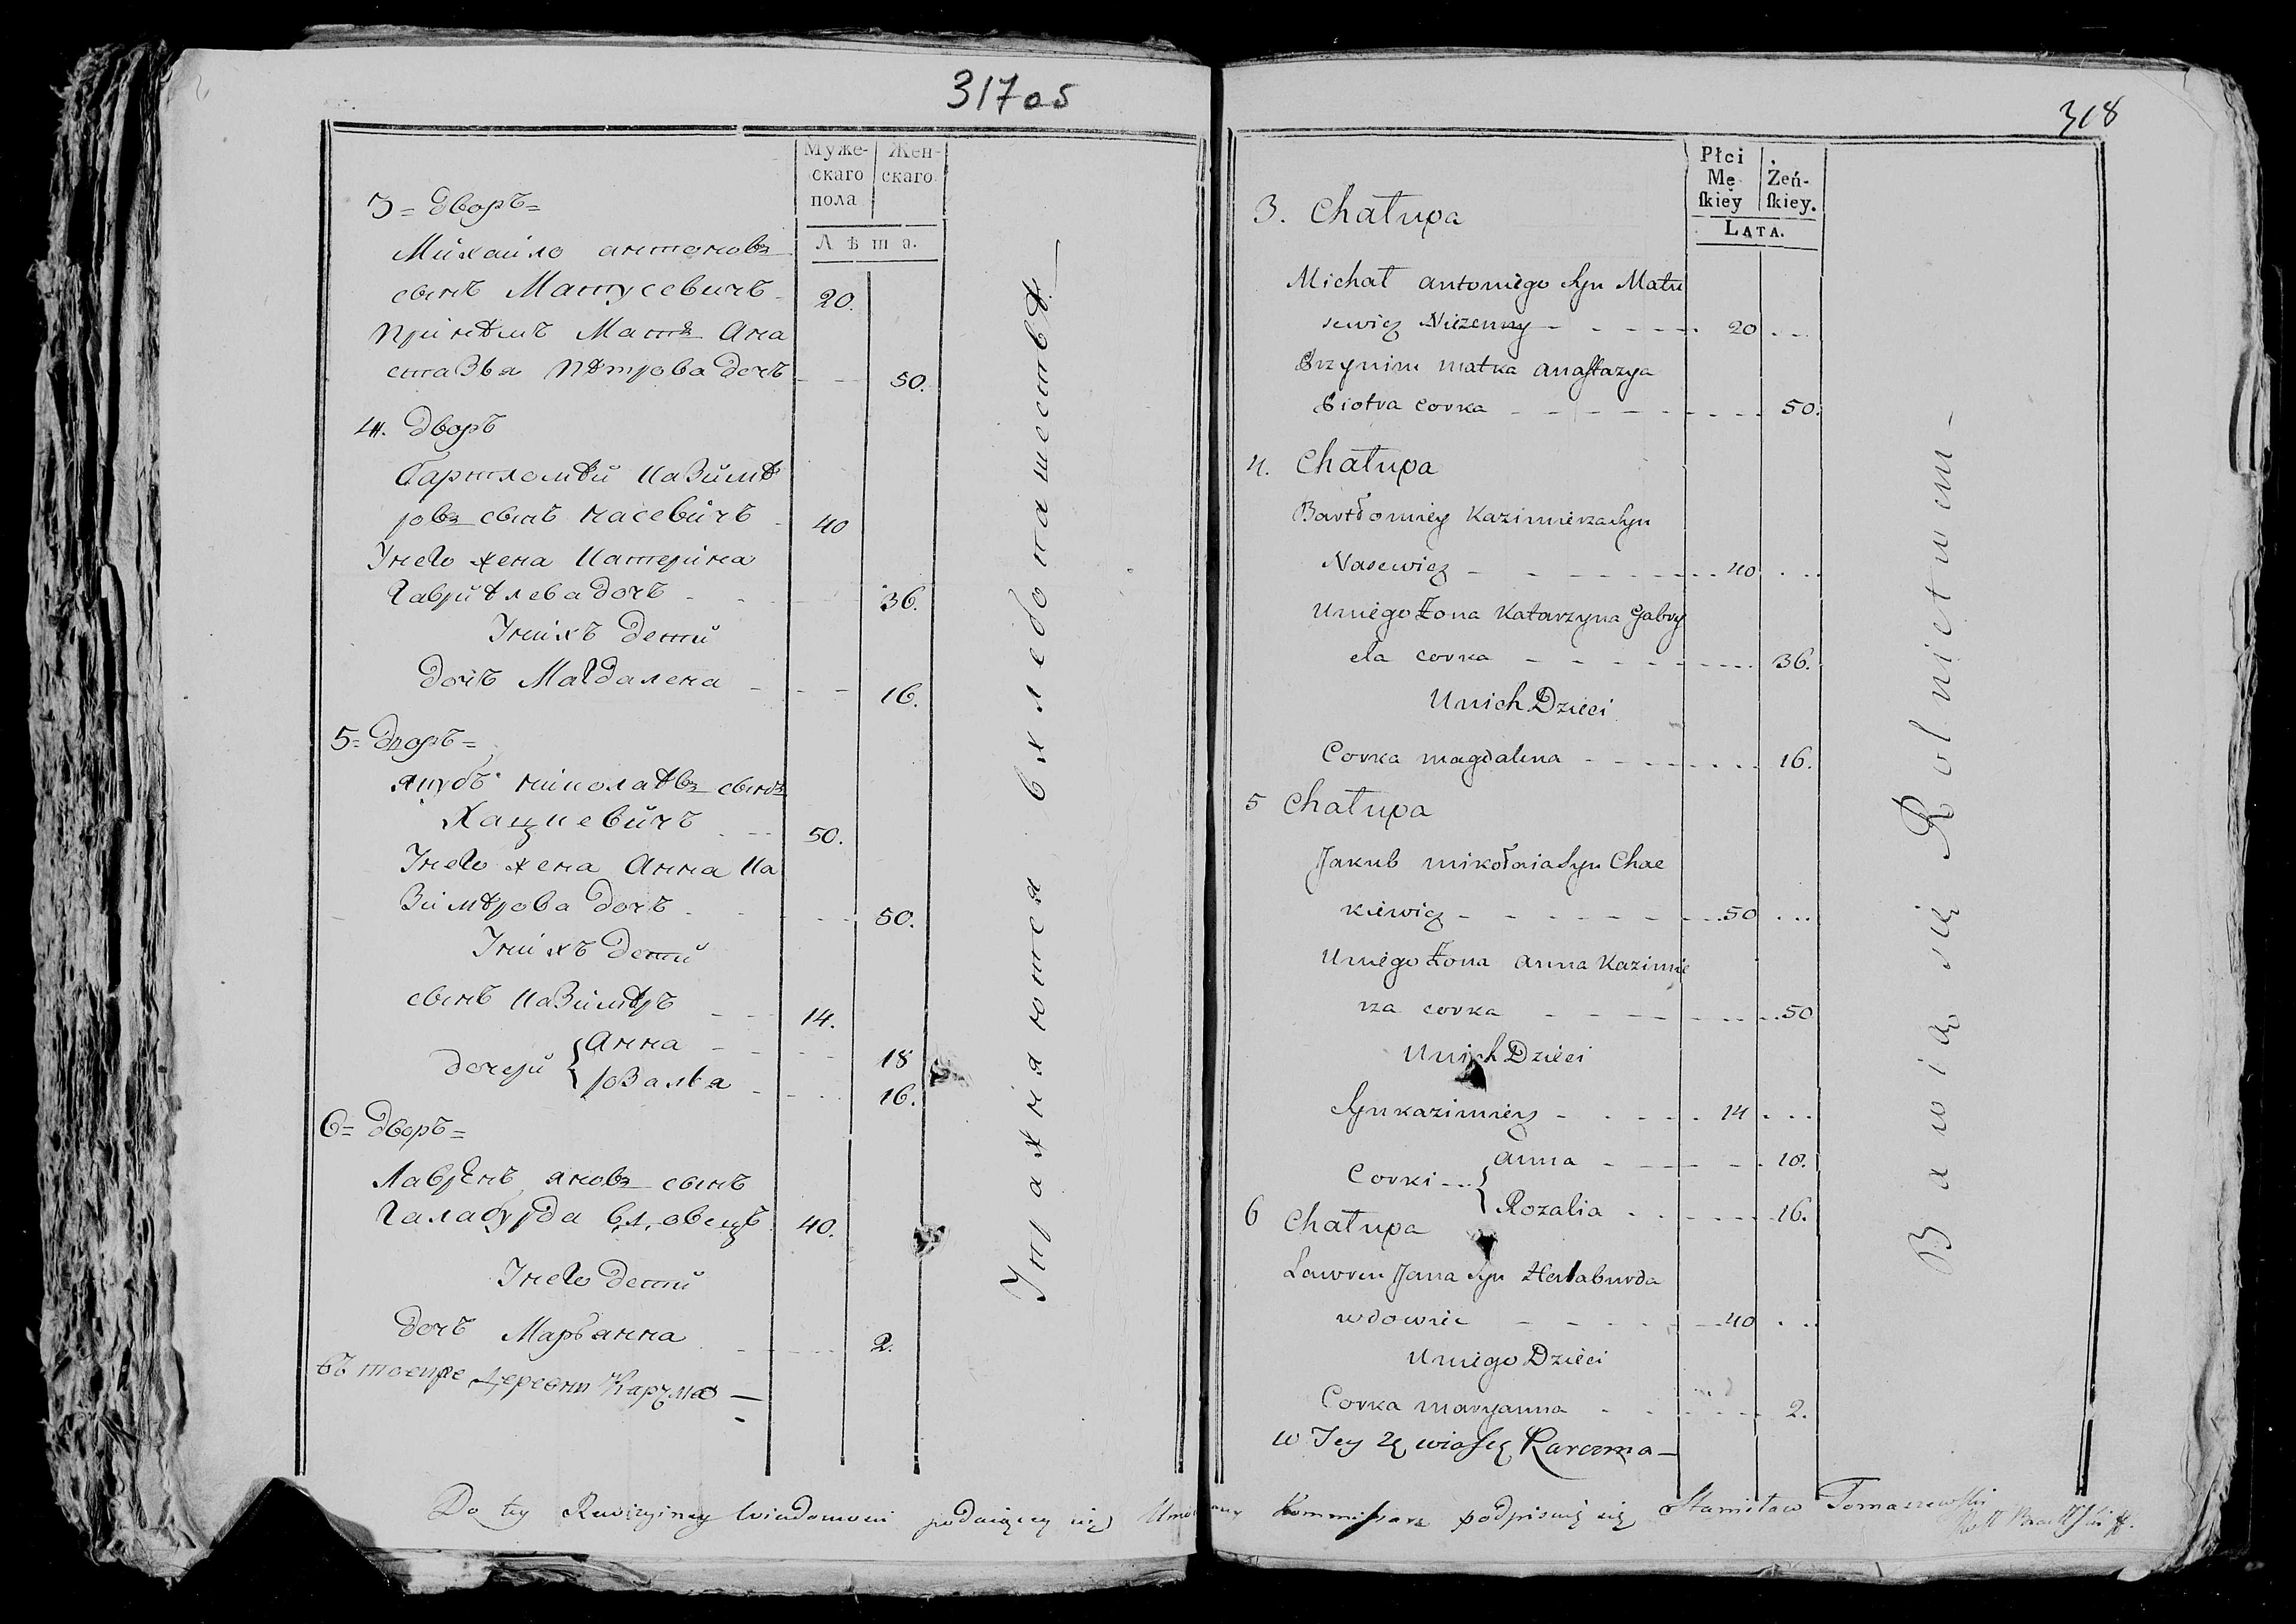 317об
Муже-
скаго
пола
Жен-
скаго.
Лѣта.
3= дворъ=
Михаило антоновъ
сынъ Матусевичъ 20.
При нѣмъ Мать Ана
стазья Пѣтрова дочъ 50.
4. дворъ
Бартломѣй Казимѣ
ровъ сынъ Насевичъ 40
У него жена Катерина
Гавриѣлева дочъ 36.
У нихъ дети
дочъ Магдалена 16.
5= дворъ=
Якубъ Николаѣвъ сынъ
Хацкевичъ 50.
У него жена Анна Ка
зимѣрова дочъ 50.
У нихъ дети
сынъ Казимѣръ 14.
дочери { Анна 18
розалья 16.
6= дворъ=
Лаврѣнъ яновъ сынъ
Галабурда вдовецъ 40.
У него дети
дочъ Марьянна 2.
въ тоейже деревни Карчма —
Упражняются в хлебопашествѣ.
Do tey Rewizyiney Wiadomosci podaiącey się
318
Płci
Mę
ſkiey
Żeń-
ſkiey.
LATA.
3. Chałupa
Michał antoniego Syn Matu
sewicz Nieżenny 20
Przynim matka anastazya
Piotra corka 50.
4. Chałupa
Bartłomiey Kazimierza Syn
Nasewicz 40
Uniego Żona Katarzyna Gabry
ela corka 36.
Unich Dzieci
Corka magdalena 16.
5 Chałupa
Jakub mikołaia Syn Chac
kiewicz 50
Uniego Żona anna Kazimie
rza corka 50
Unich Dzieci
Syn kazimierz 14
Corki { anna 18.
Rozalia 16.
6 Chałupa
Lawren Jana Syn Hałaburda
wdowiec 40
Uniego Dzieci
Corka maryanna 2.
w Tey żę wiosce Karczma —
Bawią się Rolnictwem -
Kommissarz podpisuię się Stanisław Tomaszewski